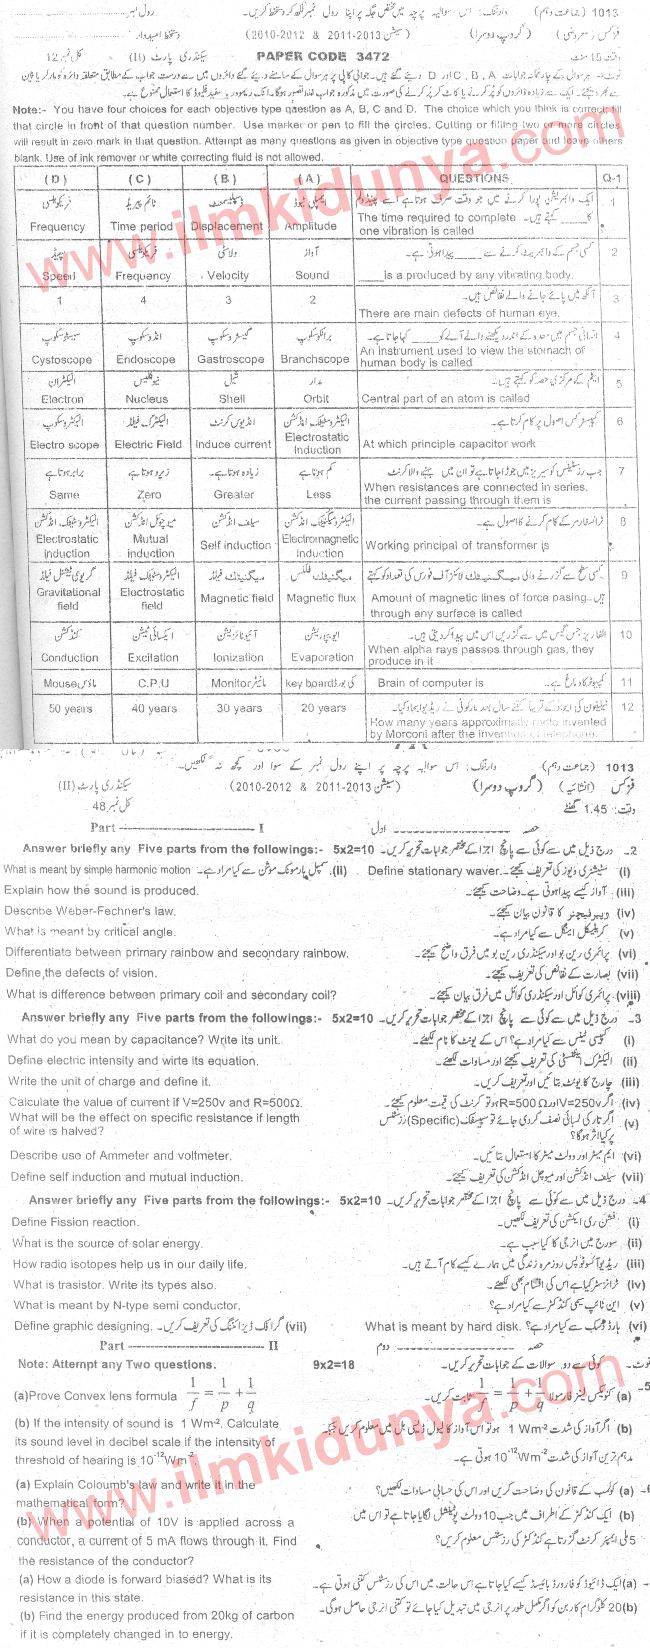 1013 (جماعت دہم) وارننگ: اس سوالیہ پرچہ میں مختص جگہ پر اپنا رول نمبر لکھ کر دستخط کریں۔ رول نمبر
فزکس (معروضی) (گروپ دوسرا) (سیشن 2011-2013 & 2010-2012) دستخط امیدوار
وقت: 15 منٹ PAPER CODE 3472 سیکنڈری پارٹ (II) کل نمبر 12
Note:- You have four choices for each objective type question as A, B, C and D. The choice which you think is correct; fill
that circle in front of that question number. Use marker or pen to fill the circles. Cutting or filling two or more circles
will result in zero mark in that question. Attempt as many questions as given in objective type question paper and leave others
blank. Use of ink remover or white correcting fluid is not allowed.
(D) (C) (B) (A) QUESTIONS Q-1
فریکوئنسی ٹائم پیریڈ ڈسپلیسمنٹ ایمپلی ٹیوڈ 1
Frequency Time period Displacement Amplitude The time required to complete
one vibration is called
سپیڈ فریکوئنسی ولاسٹی آواز 2
Speed Frequency Velocity Sound ____is a produced by any vibrating body.
1 4 3 2 آنکھ میں پائے جانے والے نقائص ہیں۔ 3
There are main defects of human eye.
سسٹوسکوپ انڈوسکوپ گیسٹروسکوپ برانکوسکوپ 4
Cystoscope Endoscope Gastroscope Branchscope An instrument used to view the stomach of
human body is called
الیکٹران نیوکلیس شیل مدار ایٹم کے مرکزی حصہ کو کہتے ہیں۔ 5
Electron Nucleus Shell Orbit Central part of an atom is called
الیکٹروسکوپ الیکٹرک فیلڈ انڈیوس کرنٹ الیکٹروسٹیٹک انڈکشن کپیسٹر کس اصول پر کام کرتا ہے۔ 6
Electro scope Electric Field Induce current Electrostatic Induction At which principle capacitor work
برابر ہوتا ہے زیرو ہوتا ہے زیادہ ہوتا ہے۔ کم ہوتا ہے 7
Same Zero Greater Less When resistances are connected in series,
the current passing through them is
الیکٹروسٹیٹک انڈکشن میوچوئل انڈکشن سیلف انڈکشن الیکٹرومیگنیٹک انڈکشن ٹرانسفارمر کے کام کرنے کا اصول ہے۔ 8
Electrostatic induction Mutual induction Self induction Electromagnetic induction Working principal of transformer is
گریوی ٹیشنل فیلڈ الیکٹروسٹیٹک فیلڈ میگنیٹک فیلڈ میگنیٹک فلکس 9
Gravitational field Electrostatic field Magnetic field Magnetic flux Amount of magnetic lines of force pasing
through any surface is called
کنڈکشن ایکسائی ٹیشن آئیونائزیشن ایوپوریشن 10
Conduction Excitation Ionization Evaporation When alpha rays passes through gas, they
produce in it
Mouse ماؤس C.P.U Monitor مانیٹر key board کی بورڈ Brain of computer is کمپیوٹر کا دماغ ہے۔ 11
50 years 40 years 30 years 20 years 12
How many years approximately radio invented
by Morconi after the invention of telephone.
1013 (جماعت دہم) وارننگ: اس سوالیہ پرچہ پر اپنے رول نمبر کے سوا اور کچھ نہ لکھیں۔
فزکس (انشائیہ) (گروپ دوسرا) (سیشن 2011-2013 & 2010-2012) سیکنڈری پارٹ (II)
وقت: 1.45 گھنٹے کل نمبر 48
Part I حصہ اول
Answer briefly any Five parts from the followings:- 5x2=10 درج ذیل میں سے کوئی سے پانچ اجزا کے مختصر جوابات تحریر کریں۔ 2-
What is meant by simple harmonic motion سمپل ہارمونک موشن سے کیا مراد ہے۔ (ii) Define stationary waver. سٹیشنری ویوز کی تعریف کیجئے۔ (i)
Explain how the sound is produced. آواز کیسے پیدا ہوتی ہے۔ وضاحت کیجئے۔ (iii)
Describe Weber-Fechner's law. ویبر فیچنر کا قانون بیان کیجئے۔ (iv)
What is meant by critical angle. کریٹیکل اینگل سے کیا مراد ہے۔ (v)
Differentiate between primary rainbow and secondary rainbow. پرائمری رین بو اور سیکنڈری رین بو میں فرق واضح کیجئے۔ (vi)
Define the defects of vision. بصارت کے نقائص کی تعریف کیجئے۔ (vii)
What is difference between primary coil and secondary coil? پرائمری کوائل اور سیکنڈری کوائل میں فرق بیان کیجئے۔ (viii)
Answer briefly any Five parts from the followings:- 5x2=10 درج ذیل میں سے کوئی سے پانچ اجزا کے مختصر جوابات تحریر کریں۔ 3-
What do you mean by capacitance? Write its unit. کپیسی ٹینس سے کیا مراد ہے؟ اس کے یونٹ کا نام لکھیئے۔ (i)
Define electric intensity and wirte its equation. الیکٹرک انٹینسٹی کی تعریف کیجئے اور مساوات لکھیئے۔ (ii)
Write the unit of charge and define it. چارج کا یونٹ بتائیں اور تعریف کریں۔ (iii)
Calculate the value of current if V=250v and R=500Ω. اگر V=250v اور R=500Ω ہو تو کرنٹ کی قیمت معلوم کیجئے۔ (iv)
What will be the effect on specific resistance if length اگر تار کی لمبائی نصف کر دی جائے تو سپیسفک (Specific) رزسٹنس (v)
of wire is halved? پر کیا اثر ہوگا؟
Describe use of Ammeter and voltmeter. ایم میٹر اور وولٹ میٹر کا استعمال بتائیں۔ (vi)
Define self induction and mutual induction. سیلف انڈکشن اور میوچل انڈکشن کی تعریف کیجئے۔ (vii)
Answer briefly any Five parts from the followings:- 5x2=10 درج ذیل میں سے کوئی سے پانچ اجزا کے مختصر جوابات تحریر کریں۔ 4-
Define Fission reaction. فشن ری ایکشن کی تعریف لکھیں۔ (i)
What is the source of solar energy. سورج میں انرجی کا کیا سبب ہے۔ (ii)
How radio isotopes help us in our daily life. ریڈیو آئسوٹوپس روزمرہ زندگی میں ہمارے کیسے کام آتے ہیں۔ (iii)
What is trasistor. Write its types also. ٹرانزسٹر کیا ہے اس کی اقسام بھی لکھیئے۔ (iv)
What is meant by N-type semi conductor. این ٹائپ سیمی کنڈکٹر سے کیا مراد ہے؟ (v)
Define graphic designing. گرافک ڈیزائننگ کی تعریف کریں۔ (vii) What is meant by hard disk. ہارڈ ڈسک سے کیا مراد ہے؟ (vi)
Part II حصہ دوم
Note: Attempt any Two questions. 9x2=18 کوئی سے دو سوالات کے جوابات تحریر کریں۔ نوٹ۔
(a)Prove Convex lens formula 1/f = 1/p + 1/q کنویکس لینز فارمولا 1/f = 1/p + 1/q ثابت کریں۔ (a) 5-
(b) If the intensity of sound is 1 Wm-2. Calculate
its sound level in decibel scale if the intensity of
threshold of hearing is 10-12Wm-2
(a) Explain Coloumb's law and write it in the کولمب کے قانون کی وضاحت کریں اور اس کی حسابی مساوات لکھیں؟ (a) 6-
mathematical form?
(b) When a potential of 10V is applied across a
conductor, a current of 5 mA flows through it. Find
the resistance of the conductor?
(a) How a diode is forward biased? What is its
resistance in this state.
(b) Find the energy produced from 20kg of carbon
if it is completely changed in to energy.
www.ilmkidunya.com
www.ilmkidunya.com